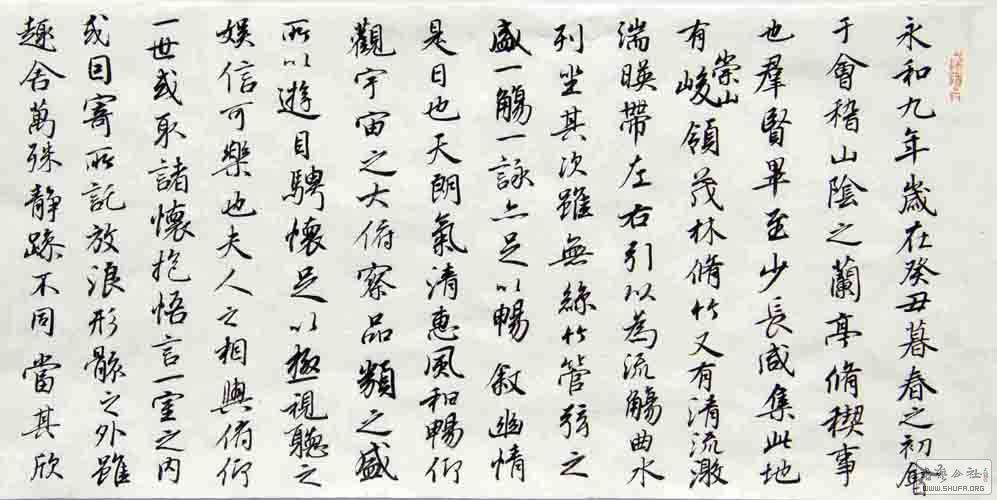 永和九年歲在癸丑暮春之初會
于會稽山陰之蘭亭脩稧事
也羣賢畢至少長咸集此地
有崇山峻領茂林脩竹又有清流激
湍暎帶左右引以為流觴曲水
列坐其次雖無絲竹管弦之
盛一觴一詠亦足以暢敘幽情
是日也天朗氣清惠風和暢仰
觀宇宙之大俯察品類之盛
所以遊目騁懷足以極視聽之
娛信可樂也夫人之相與俯仰
一世或取諸懷抱悟言一室之內
或因寄所託放浪形骸之外雖
趣舍萬殊静躁不同當其欣
WWW.SHUFA.ORG